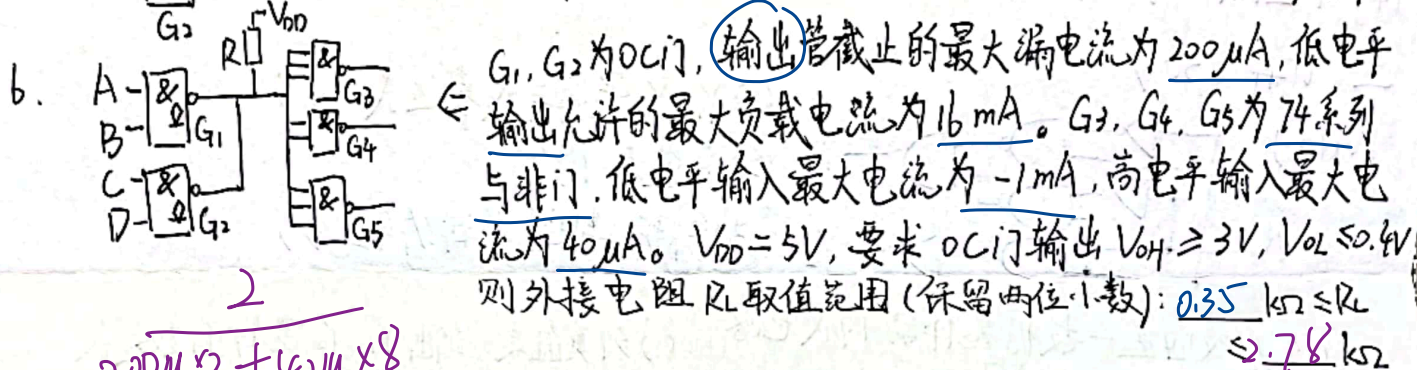 G2
VDD
R
6.
A
B
C
D
&
G1
&
G2
&
G3
&
G4
&
G5
G1, G2为OC门, 输出管截止的最大漏电流为 200μA, 低电平
输出允许的最大负载电流为 16 mA。G3, G4, G5为 74系列
与非门. 低电平输入最大电流为 -1mA, 高电平输入最大电
流为 40μA。 VDD = 5V, 要求 OC门输出 VOH ≥ 3V, VOL ≤ 0.4V
则外接电阻 RL取值范围 (保留两位小数): 0.35 kΩ ≤ RL
≤ 2.78 kΩ
2
200μ×2 + 40μ×8